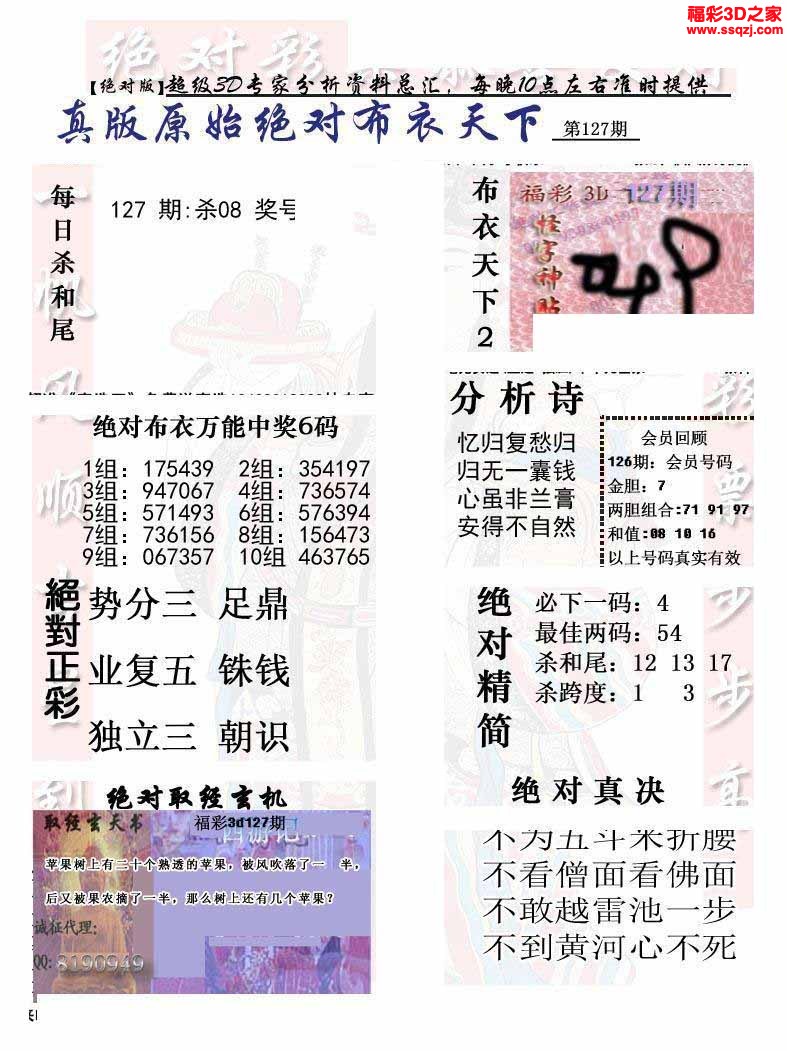 福彩3D之家
www.ssqzj.com
绝对彩
【绝对版】超级3D专家分析资料总汇，每晚10点左右准时提供
真版原始绝对布衣天下 第127期
每日杀和尾
127 期:杀08 奖号
布衣天下2
福彩 3D 127期
怪字神贴
绝对布衣万能中奖6码
1组: 175439 2组: 354197
3组: 947067 4组: 736574
5组: 571493 6组: 576394
7组: 736156 8组: 156473
9组: 067357 10组 463765
分析诗
忆归复愁归
归无一囊钱
心虽非兰膏
安得不自然
会员回顾
126期: 会员号码
金胆: 7
两胆组合:71 91 97
和值:08 10 16
以上号码真实有效
絕對正彩
势分三 足鼎
业复五 铢钱
独立三 朝识
绝对精简
必下一码: 4
最佳两码: 54
杀和尾: 12 13 17
杀跨度: 1 3
绝对取经玄机
取经玄天书 福彩3d127期
西游记
苹果树上有二十个熟透的苹果，被风吹落了一 半，
后又被果农摘了一半，那么树上还有几个苹果?
诚征代理:
QQ: 8190949
绝对真决
不为五斗米折腰
不看僧面看佛面
不敢越雷池一步
不到黄河心不死